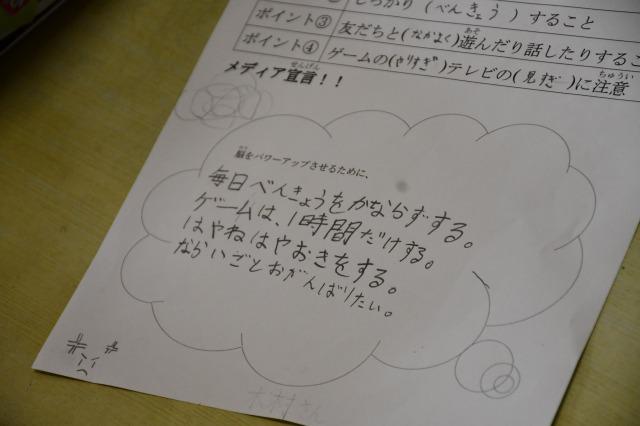 しっかり(べんきょう)すること
ポイント③ 友だちと(なかよく)遊んだり話したりするこ
ポイント④ ゲームの(やりすぎ)テレビの(見すぎ)に注意
メディア宣言！！
脳をパワーアップさせるために、
毎日べんきょうをかならずする。
ゲームは、1時間だけする。
はやねはやおきをする。
ならいごとおがんばりたい。
木村さん